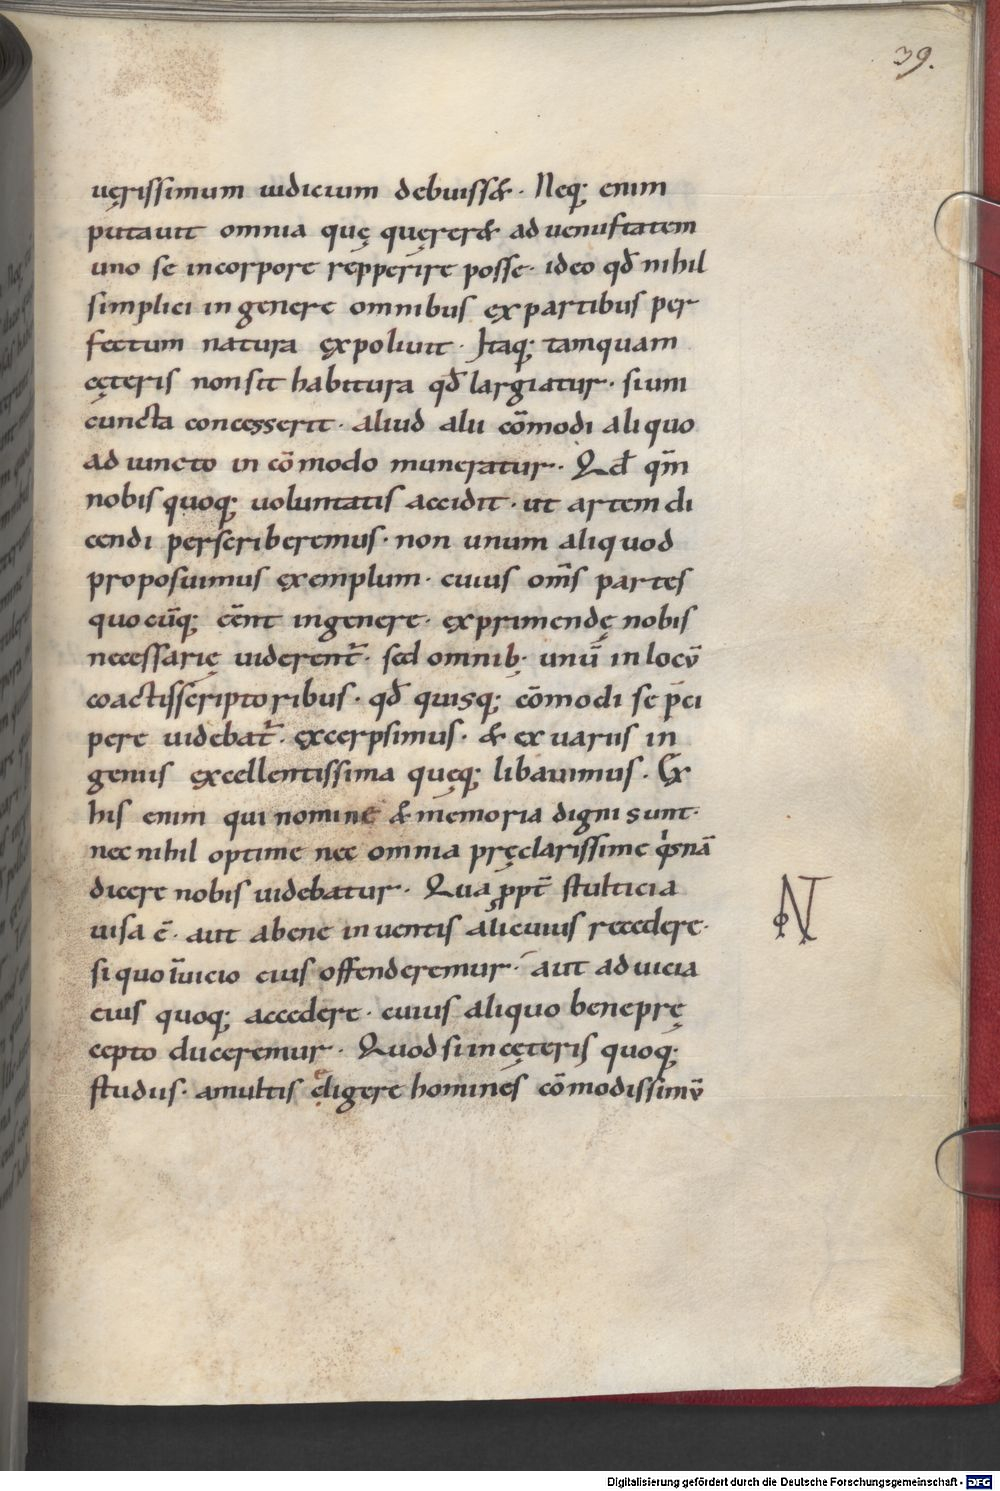 39.
uęrissimum iudicium debuiss&. Neq; enim
putauit omnia quę quęrer& ad uenustatem
uno se incorpore repperire posse. ideo qđ nihil
simplici in genere omnibus ex partibus per
fectum natura expoliuit. Itaq; tamquam
cęteris non sit habitura qđ largiatur. si uni
cuncta concesserit. aliud alii cōmodi aliquo
ad iuncto in cōmodo muneratur. Qđ qm̄
nobis quoq; uoluntatis accidit. ut artem di
cendi perscriberemus. non unum aliquod
proposuimus exemplum. cuius om̄s partes
quocūq; cēnt ingenere. exprimendę nobis
necessarię uiderent̄. sed omnib; unū in locū
coactis scriptoribus. qđ quisq; cōmodi se p̄ci
pere uidebat̄. excerpsimus. & ex uariis in
geniis excellentissima quęq; libauimus. Ex
his enim qui nomine & memoria digni sunt.
nec nihil optime nec omnia pręclarissime q̓snā
dicere nobis uidebatur. Qua ꝓpt̄ stulticia
uisa ē. aut abene inuentis alicuius recedere.
si quo īuicio eius offenderemur. aut ad uicia
eius quoq; accedere. cuius aliquo bene prę
cepto duceremur. Quod si in cęteris quoq;
studiis. amultis eligere homines cōmodissimū
N
Digitalisierung gefördert durch die Deutsche Forschungsgemeinschaft - DFG